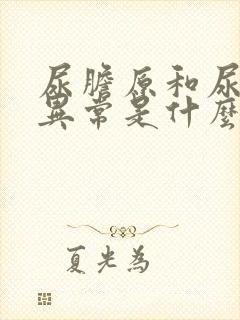 尿膽原和尿
異常是什麼
夏光為